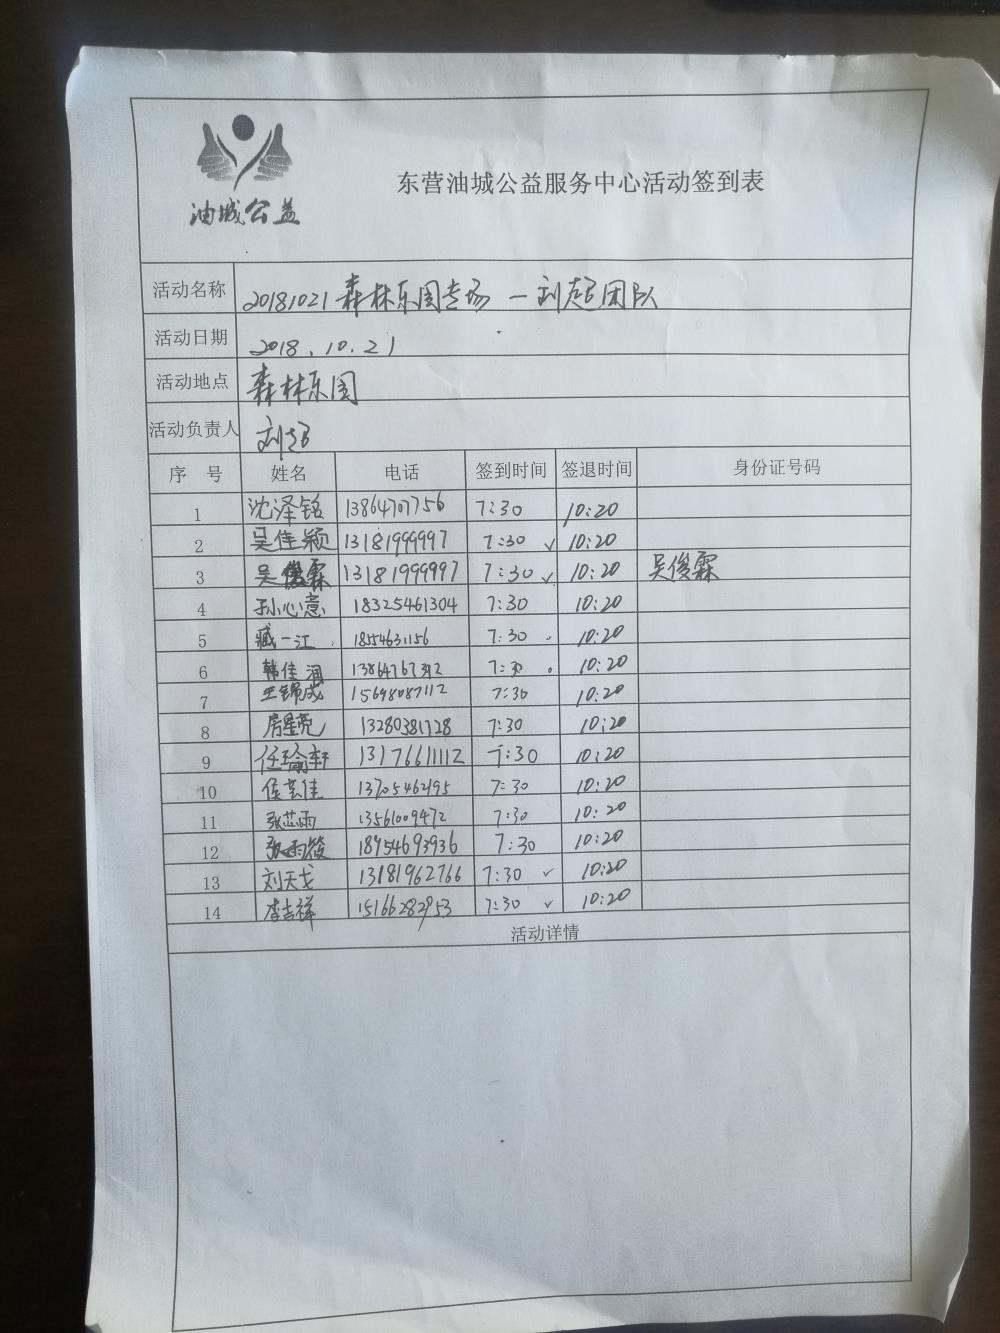 油城公益
东营油城公益服务中心活动签到表
活动名称 20181021森林乐园专场一刘超团队
活动日期 2018.10.21
活动地点 森林乐园
活动负责人 刘超
序号 姓名 电话 签到时间 签退时间 身份证号码
1 沈泽铭 13864707756 7:30 10:20
2 吴佳颖 13181999997 7:30 ✓ 10:20
3 吴俊霖 13181999997 7:30 ✓ 10:20 吴俊霖
4 孙心意 18325461304 7:30 10:20
5 臧一江 18554631156 7:30 10:20
6 韩佳润 7:30 10:20
7 王锦成 15698087112 7:30 10:20
8 房星亮 7:30 10:20
9 任瑜轩 13176611112 7:30 10:20
10 侯芸佳 13705462195 7:30 10:20
11 张芯雨 13561009472 7:30 10:20
12 张雨筱 18954693936 7:30 10:20
13 刘天戈 13181962766 7:30 ✓ 10:20
14 李吉祥 15166282953 7:30 ✓ 10:20
活动详情